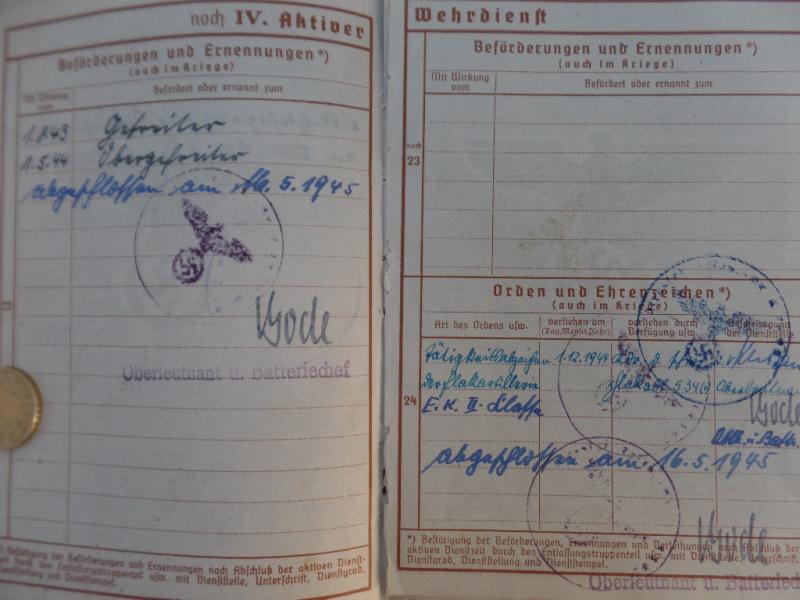 noch IV. Aktiver
Beförderungen und Ernennungen*)
(auch im Kriege)
Mit Wirkung
vom
Befördert oder ernannt zum
1.8.43 Gefreiter
1.5.44 Obergefreiter
abgeschlossen am 16.5.1945
Bode
Oberleutnant u. Batteriechef
*) Bestätigung der Beförderungen und Ernennungen nach Abschluß der aktiven Dienst-
zeit durch den Entlassungstruppenteil usw. mit Dienststelle, Unterschrift, Dienstgrad,
Dienststellung und Dienststempel.
Wehrdienst
Beförderungen und Ernennungen*)
(auch im Kriege)
Mit Wirkung
vom
Befördert oder ernannt zum
noch
23
Orden und Ehrenzeichen*)
(auch im Kriege)
Art des Ordens usw.
verliehen am
(Tag, Monat, Jahr)
verliehen durch
Verfügung usw.
Bescheinigung
der Dienststelle
Tätigkeitsabzeichen 1.12.1944
der Flakartillerie
E.K. II. Klasse
24
Bode
abgeschlossen am 16.5.1945
Bode
*) Bestätigung der Beförderungen, Ernennungen und Verleihungen nach Abschluß der
aktiven Dienstzeit durch den Entlassungstruppenteil usw. mit Dienststelle, Unterschrift,
Dienstgrad, Dienststellung und Dienststempel.
Oberleutnant u. Batteriechef